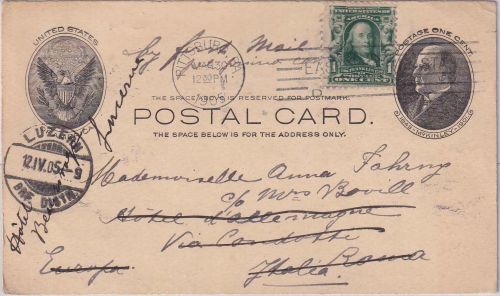 UNITED STATES
POSTAGE ONE CENT
By first Mail
PITTSBURG
30
12 30 PM
1905
1843 McKINLEY 1901
THE SPACE ABOVE IS RESERVED FOR POSTMARK.
POSTAL CARD.
THE SPACE BELOW IS FOR THE ADDRESS ONLY.
LUZERN
12.IV.05.-9
BRF. DISTR.
Hôtel
Lucerne
Mademoiselle Anna Fahrny
c/o Mrs Bovill
Hôtel d'allemagne
Via Condotti
Europa. Italia. Roma